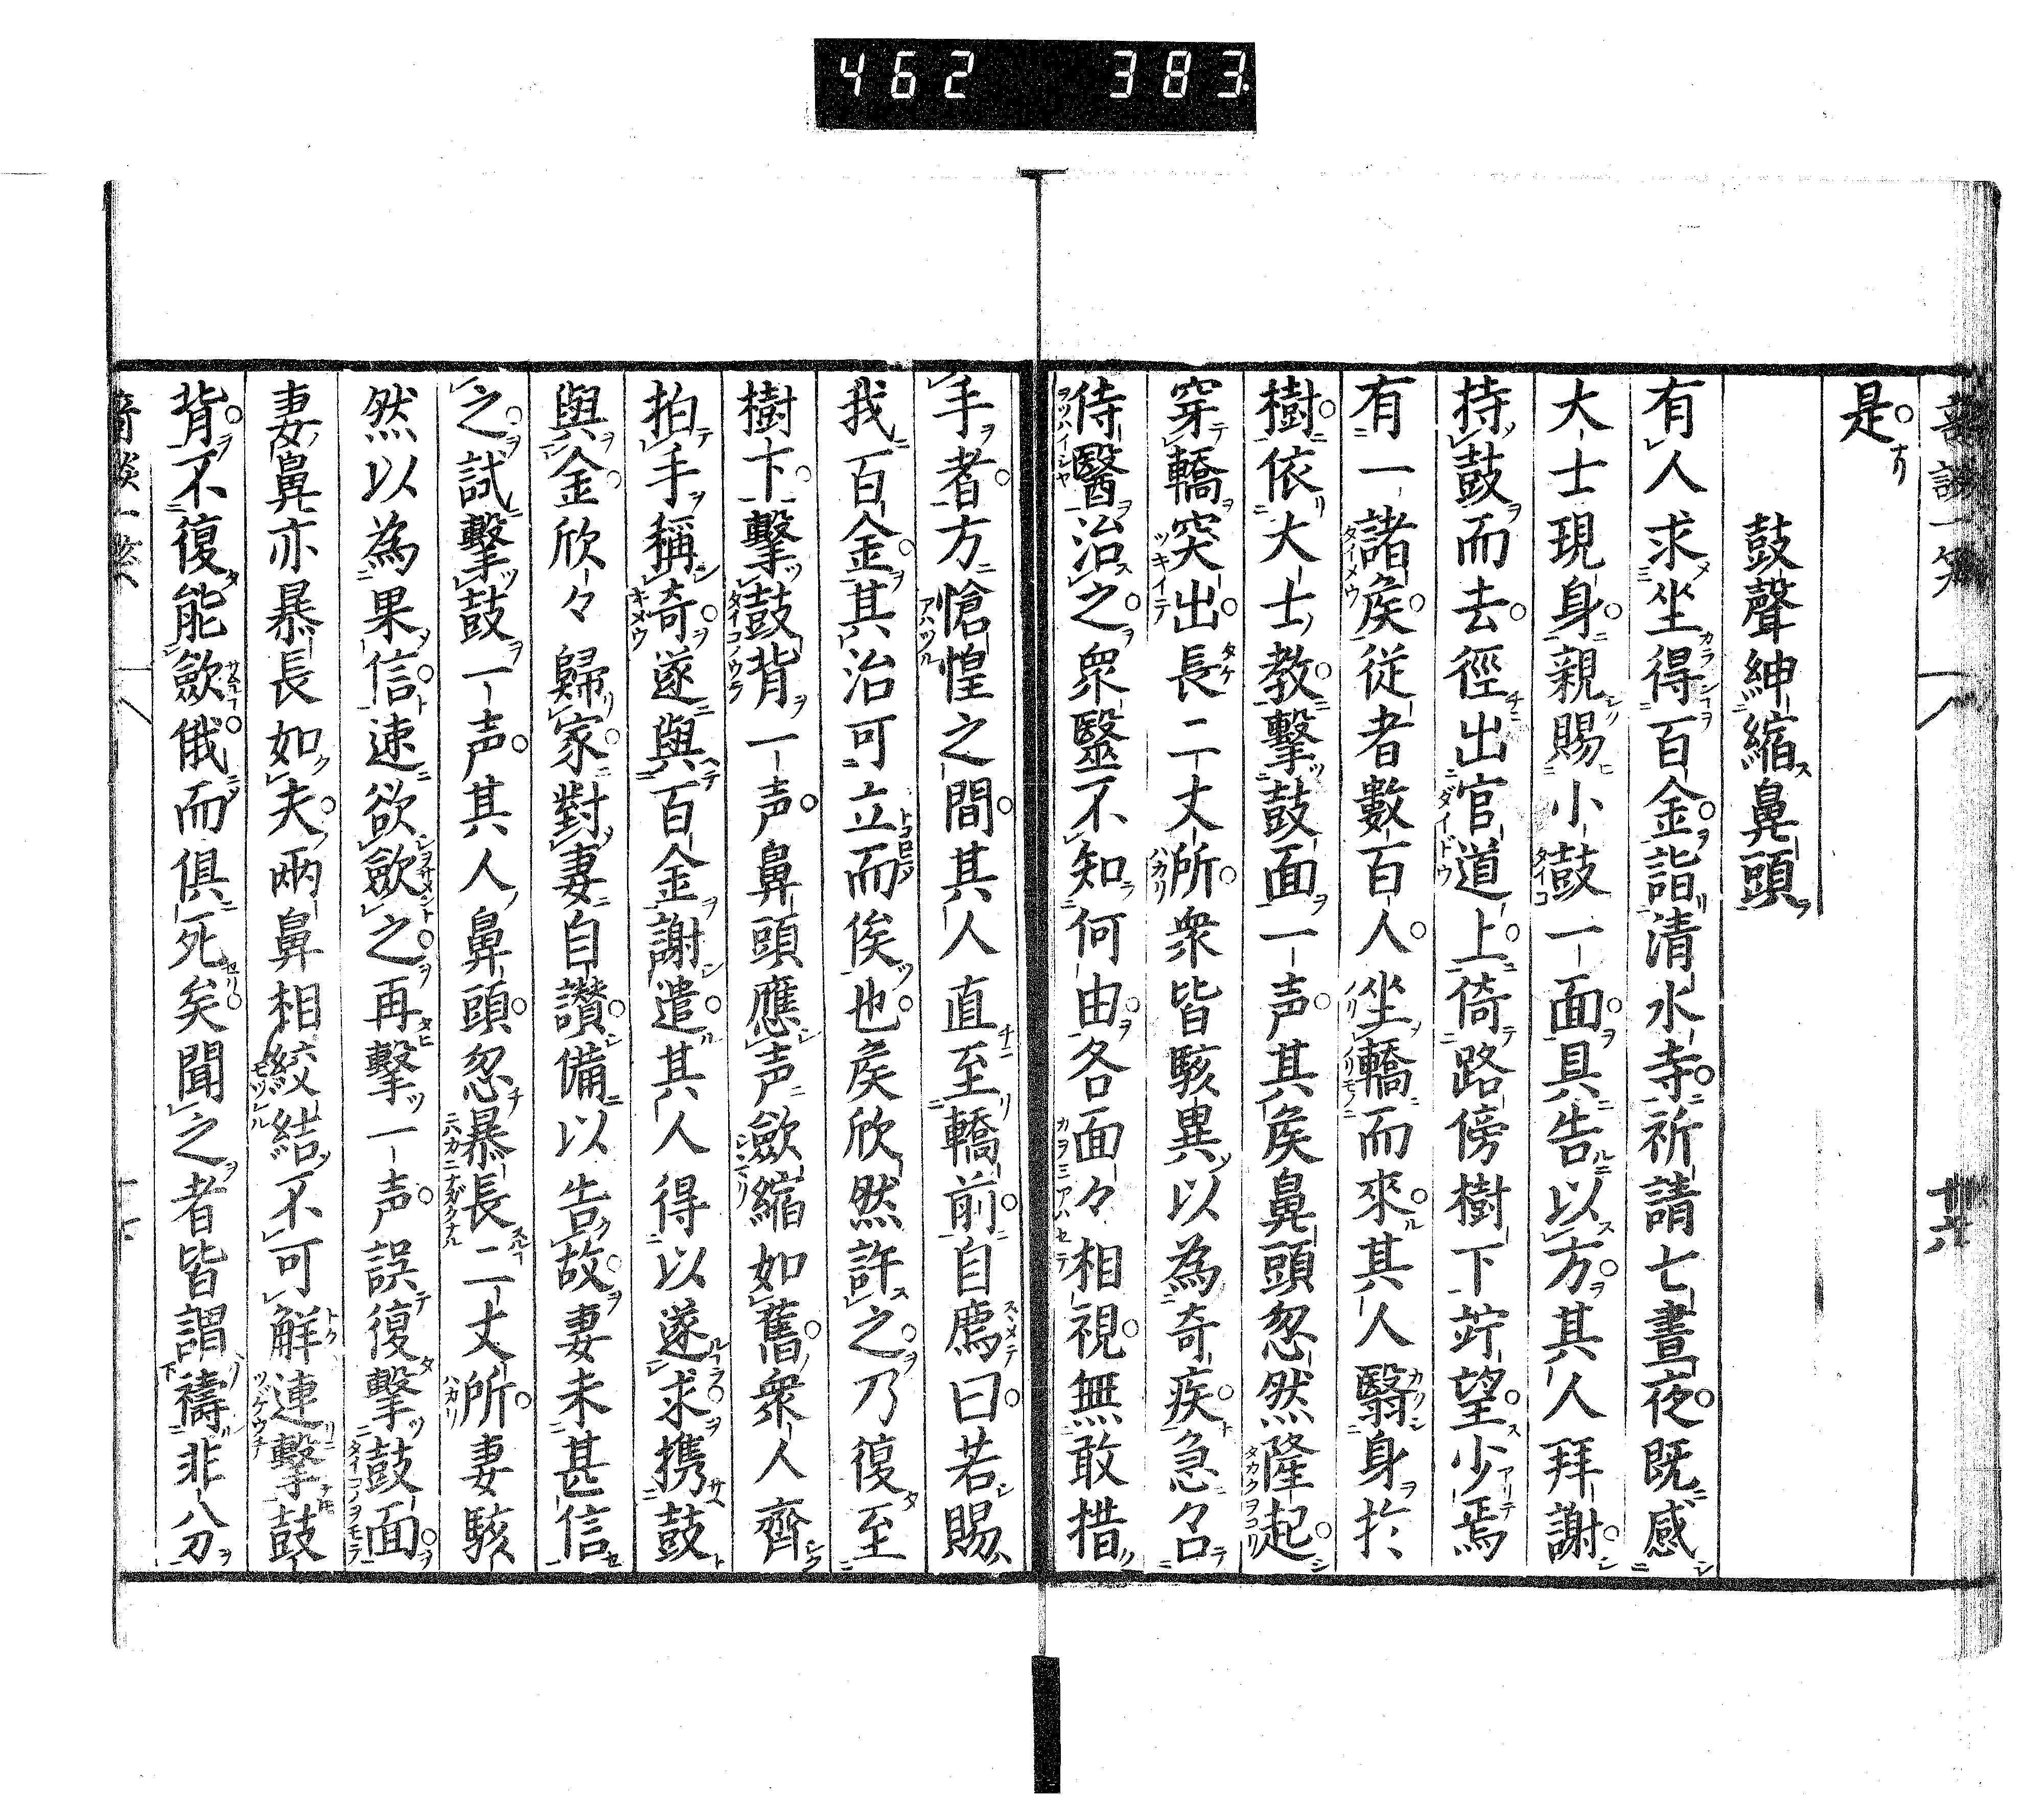 462 383
是
鼓聲紳縮鼻頭
有人求坐得百金詣清水寺祈請七晝夜既感
大士現身親賜小鼓一面具告以方其人拜謝
持鼓而去徑出官道上倚路傍樹下竚望少焉
有一諸矦従者數百人坐轎而來其人翳身於
樹依大士教擊鼓面一声其矦鼻頭忽然隆起
穿轎突出長二丈所衆皆駭異以為奇疾急召
侍醫治之衆醫不知何由各面々相視無敢措
手者方愴惶之間其人直至轎前自薦曰若賜
我百金其治可立而俟也矦欣然許之乃復至
樹下擊鼓背一声鼻頭應声歛縮如舊衆人齊
拍手稱奇遂與百金謝遣其人得以遂求携鼓
與金欣々歸家對妻自讃備以告故妻未甚信
之試擊鼓一声其人鼻頭忽暴長二丈所妻駭
然以為果信速欲歛之再擊一声誤復擊鼓面
妻鼻亦暴長如夫兩鼻相絞結不可解連擊鼓
背不復能歛俄而俱死矣聞之者皆謂禱非分